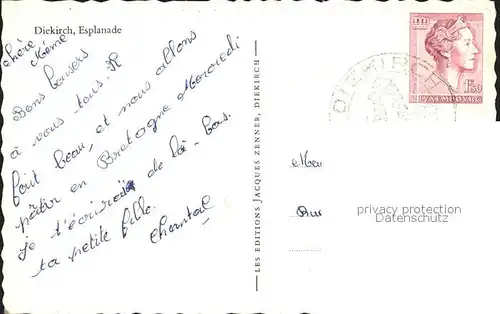 Diekirch, Esplanade
Chère Mémé
Bons baisers
à vous tous. Il
fait beau, et nous allons
partir en Bretagne Mercredi
je t'écrirai de là-bas.
ta petite fille.
Chantal
LES EDITIONS JACQUES ZENNER, DIEKIRCH
DIEKIRCH
1F50
LUXEMBOURG
privacy protection
watermark